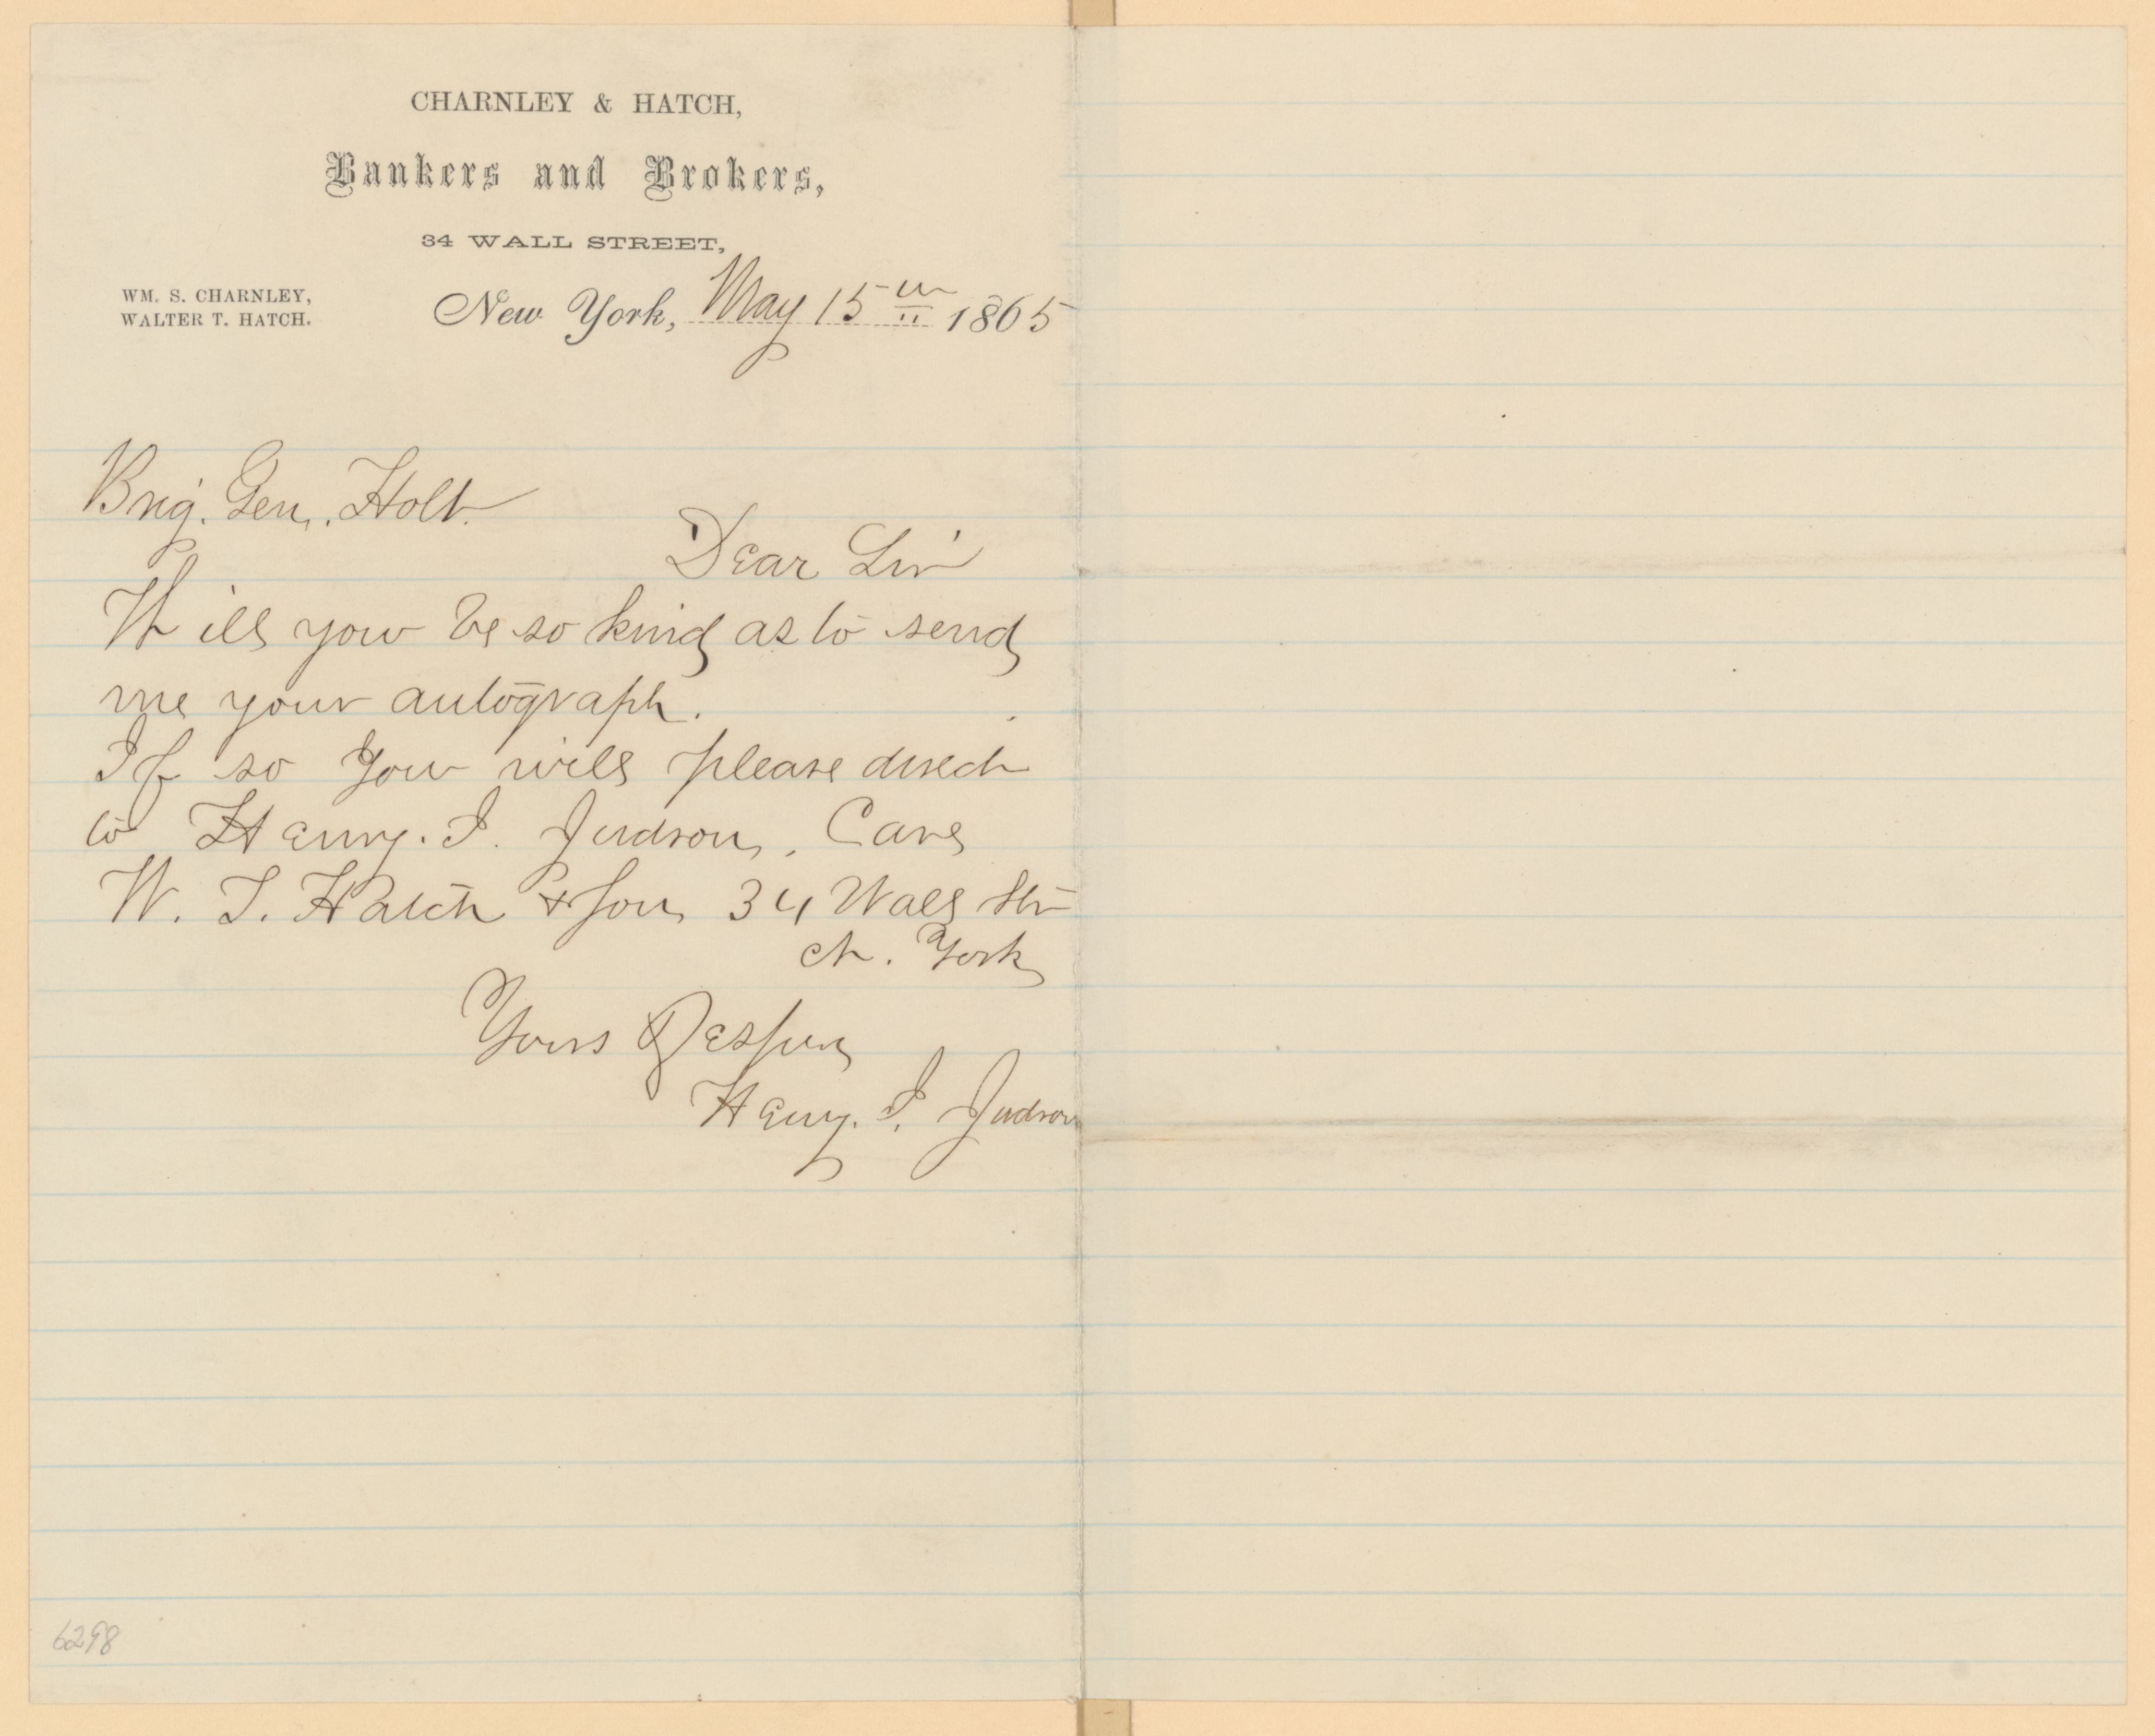 CHARNLEY & HATCH,
Bankers and Brokers,
34 WALL STREET,
WM. S. CHARNLEY,
WALTER T. HATCH.
New York, May 15th 1865
Brig. Gen. Holt.
Dear Sir
Will you be so kind as to send
me your autograph.
If so you will please direct
to Henry. I. Judson, Care
W. T. Hatch & Son 34 Wall Str
N. York
Yours Respny
Henry. I. Judson
6298